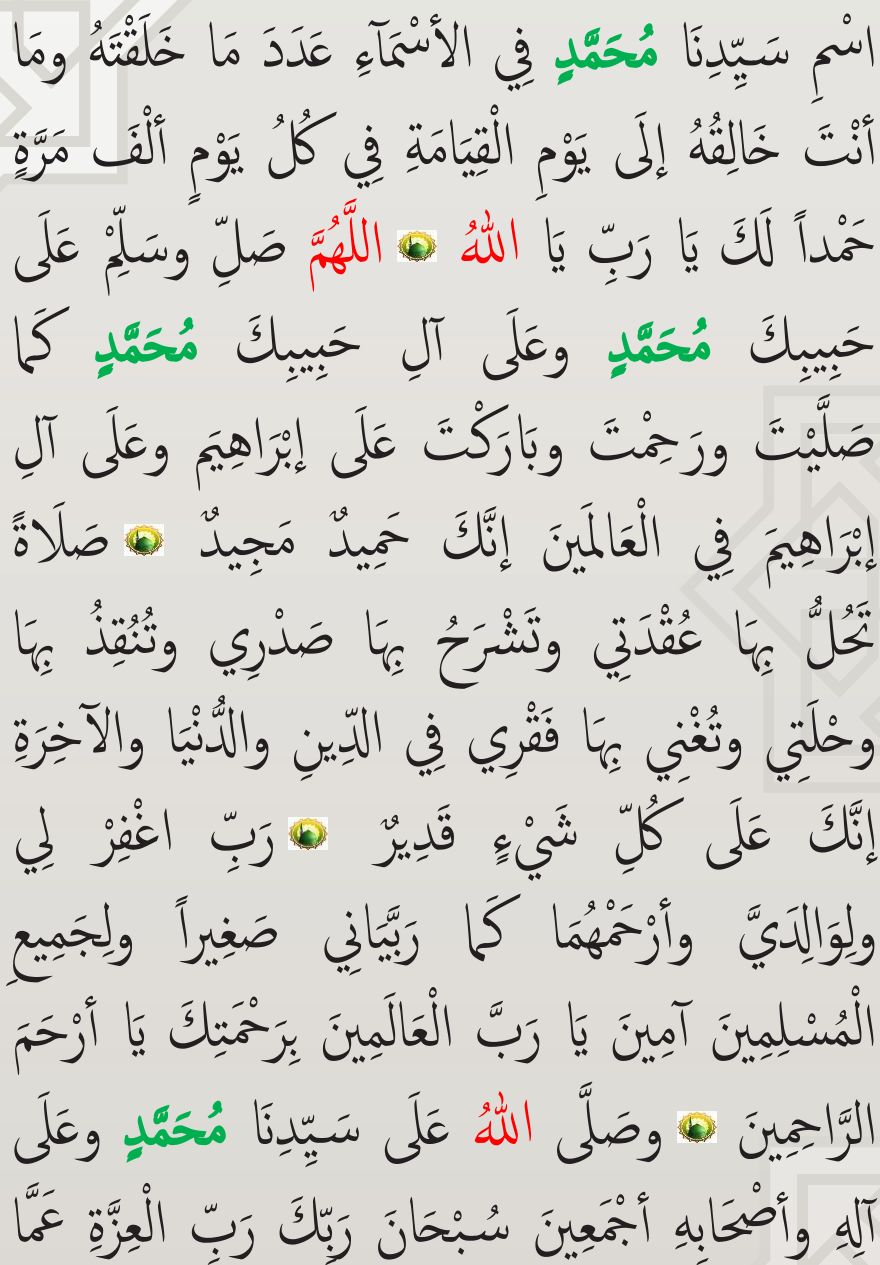 اسْمِ سَيِّدِنَا مُحَمَّدٍ فِي الأسْمَآءِ عَدَدَ مَا خَلَقْتَهُ ومَا
أنْتَ خَالِقُهُ إلَى يَوْمِ الْقِيَامَةِ فِي كُلُ يَوْمٍ ألْفَ مَرَّةٍ
حَمْداً لَكَ يَا رَبِّ يَا اللهُ اللَّهُمَّ صَلِّ وسَلِّمْ عَلَى
حَبِيبِكَ مُحَمَّدٍ وعَلَى آلِ حَبِيبِكَ مُحَمَّدٍ كَمَا
صَلَّيْتَ ورَحِمْتَ وبَارَكْتَ عَلَى إبْرَاهِيَم وعَلَى آلِ
إبْرَاهِيمَ فِي الْعَالمَِينَ إنَّكَ حَمِيدٌ مَجِيدٌ صَلَاةً
تَحُلُّ بِهَا عُقْدَتِي وتَشْرَحُ بِهَا صَدْرِي وتُنُقِذُ بِهَا
وحْلَتِي وتُغْنِي بِهَا فَقْرِي فِي الدِّينِ والدُّنْيَا والآخِرَةِ
إنَّكَ عَلَى كُلِّ شَيْءٍ قَدِيرٌ رَبِّ اغْفِرْ لِي
ولِوَالِدَيَّ وأرْحَمْهُمَا كَمَا رَبَّيَانِي صَغِيراً ولِجَمِيعِ
الْمُسْلِمِينَ آمِينَ يَا رَبَّ الْعَالَمِينَ بِرَحْمَتِكَ يَا أرْحَمَ
الرَّاحِمِينَ وصَلَّى اللهُ عَلَى سَيِّدِنَا مُحَمَّدٍ وعَلَى
آلِهِ وأصْحَابِهِ أجْمَعِينَ سُبْحَانَ رَبِّكَ رَبِّ الْعِزَّةِ عَمَّا